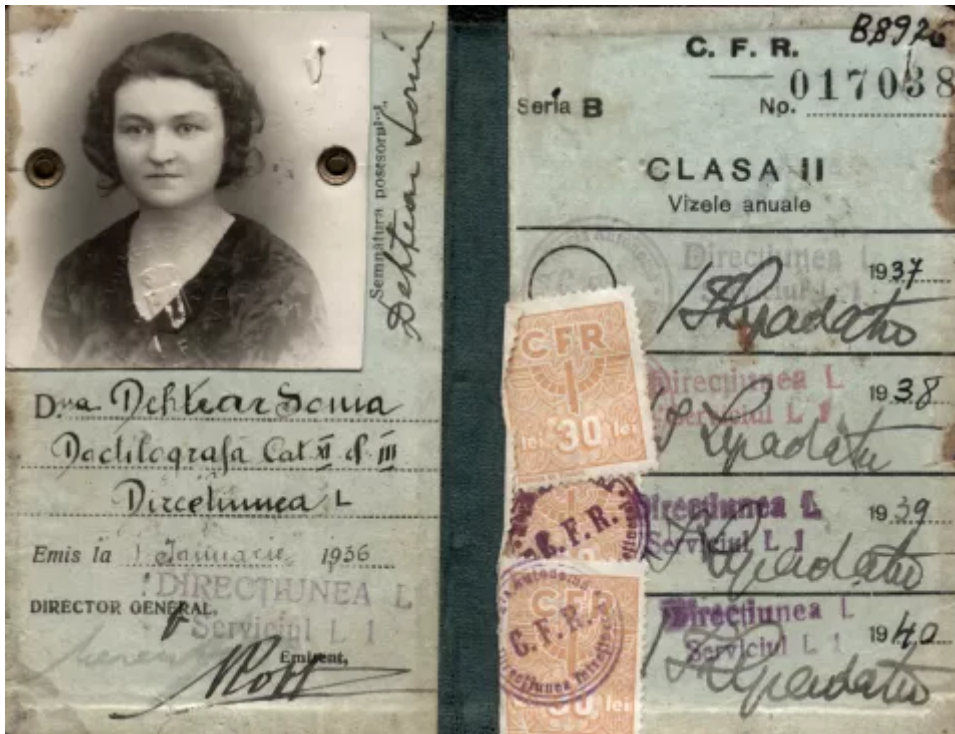 Semnătura posesorului,
Dehtear Sonia
D.na Dehtear Sonia
Dactilografa Cat XI cl III
Direcțiunea L
Emis la 1 Ianuarie 1936
DIRECȚIUNEA L
DIRECTOR GENERAL,
Serviciul L 1
Emitent,
B8926
C. F. R.
Seria B No. 017038
CLASA II
Vizele anuale
Direcțiunea L
1937
CFR
lei 30 lei
Direcțiunea L
Serviciul L 1
1938
C.F.R.
Direcțiunea L
Serviciul L 1
1939
CFR
C.F.R.
30 lei
Direcțiunea L
Serviciul L 1
1940